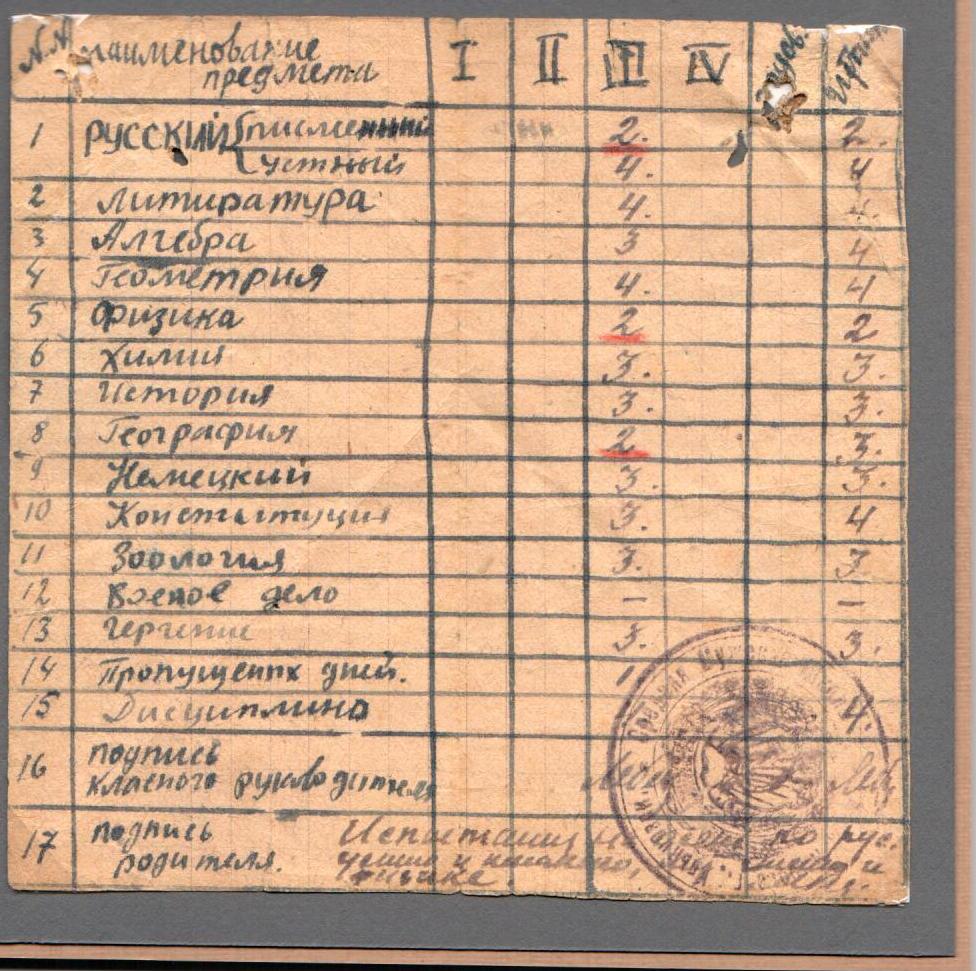 N.N Наименование I II III IV
предмета
1 РУССКИЙ письменный 2. 2.
устный 4. 4
2 Литиратура 4. 4.
3 Алгебра 3 4
4 Геометрия 4. 4
5 Физика 2 2
6 Химия 3. 3.
7 История 3. 3.
8 География 2 3.
9 Немецкий 3. 3.
10 Конституция 3. 4
11 Зоология 3. 3
12 Военое дело – –
13 Черчение 3. 3.
14 Пропущеных дней. 1
15 Дисциплина 4.
16 подпись
класного руководителя
17 подпись Испытания по рус.
родителя. устно и
физика.